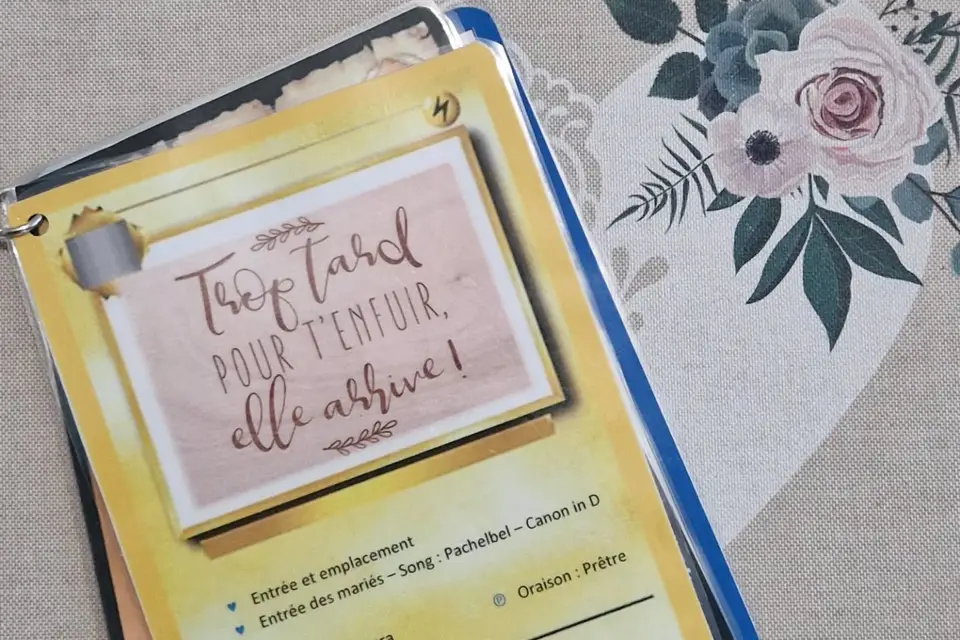 Trop Tard
POUR T'ENFUIR,
elle arrive !
Entrée et emplacement
Entrée des mariés – Song : Pachelbel – Canon in D
Ⓟ Oraison : Prêtre